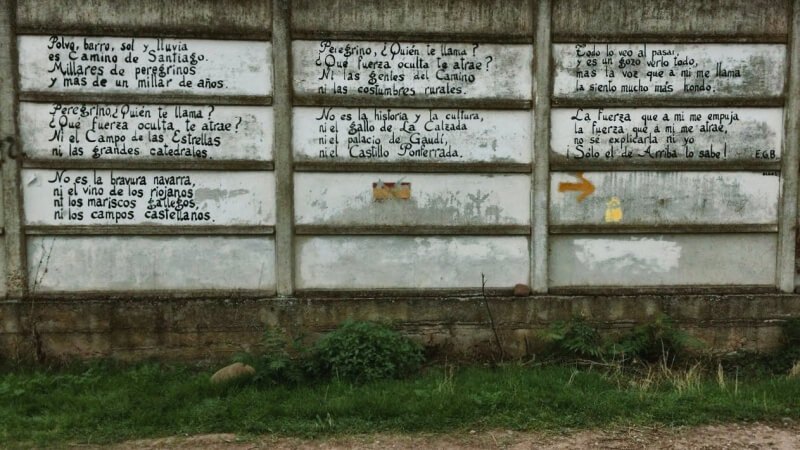 Polvo, barro, sol y lluvia
es Camino de Santiago.
Millares de peregrinos
y más de un millar de años.
Peregrino ¿Quién te llama?
¿Qué fuerza oculta te atrae?
Ni el Campo de las Estrellas
ni las grandes catedrales.
No es la bravura navarra,
ni el vino de los riojanos
ni los mariscos gallegos,
ni los campos castellanos.
Peregrino, ¿Quién te llama?
¿Qué fuerza oculta te atrae?
Ni las gentes del Camino
ni las costumbres rurales.
No es la historia y la cultura,
ni el gallo de La Calzada
ni el palacio de Gaudí,
ni el Castillo Ponferrada.
Todo lo veo al pasar,
y es un gozo verlo todo,
mas la voz que a mi me llama
la siento mucho más hondo.
La fuerza que a mi me empuja
la fuerza que a mi me atrae,
no sé explicarla ni yo
¡Sólo el de Arriba lo sabe! E.G.B.